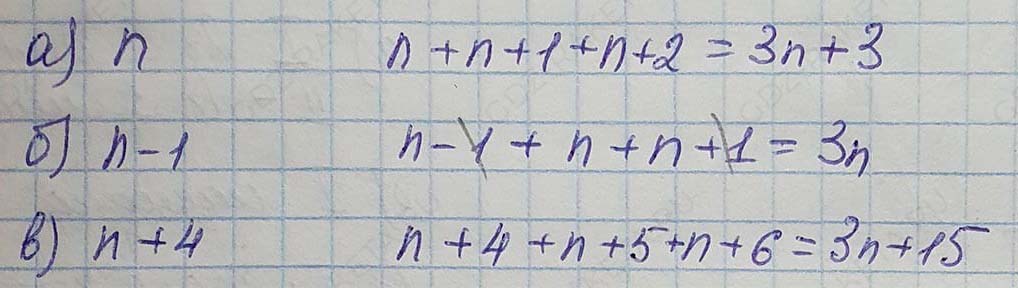 а) n n + n + 1 + n + 2 = 3n + 3
б) n - 1 n - 1 + n + n + 1 = 3n
в) n + 4 n + 4 + n + 5 + n + 6 = 3n + 15